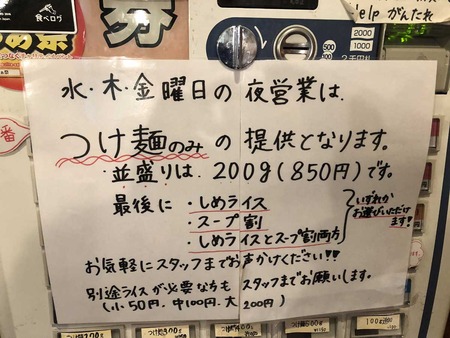 食べログ
券
Help がんたれ
2000
1000
500
水・木・金曜日の夜営業は、
つけ麺のみの提供となります。
並盛りは、200g(850円)です。
最後に・しめライス
・スープ割
・しめライスとスープ割両方
いずれか
お選びいただけ
ます!
お気軽にスタッフまでお声かけください!!
別途ライスが必要な方もスタッフまでお願いします。
(小50円、中100円、大200円)
番